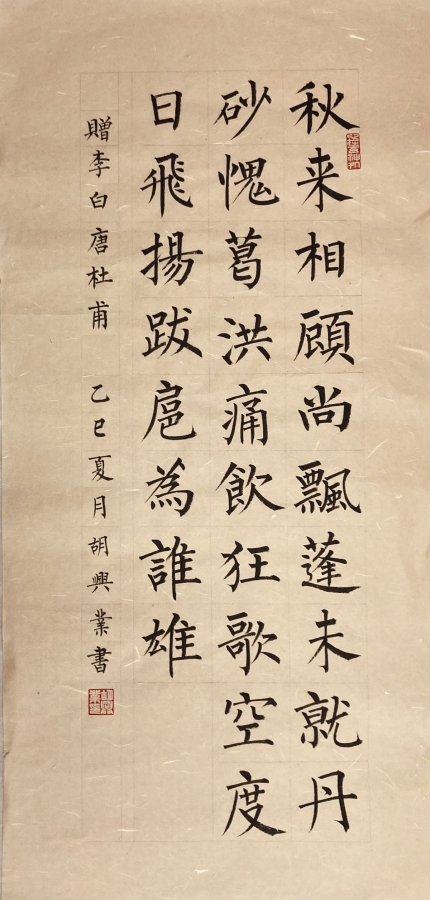 秋来相顧尚飄蓬未就丹
砂愧葛洪痛飲狂歌空度
日飛揚跋扈為誰雄
贈李白唐杜甫 乙巳夏月胡興業書